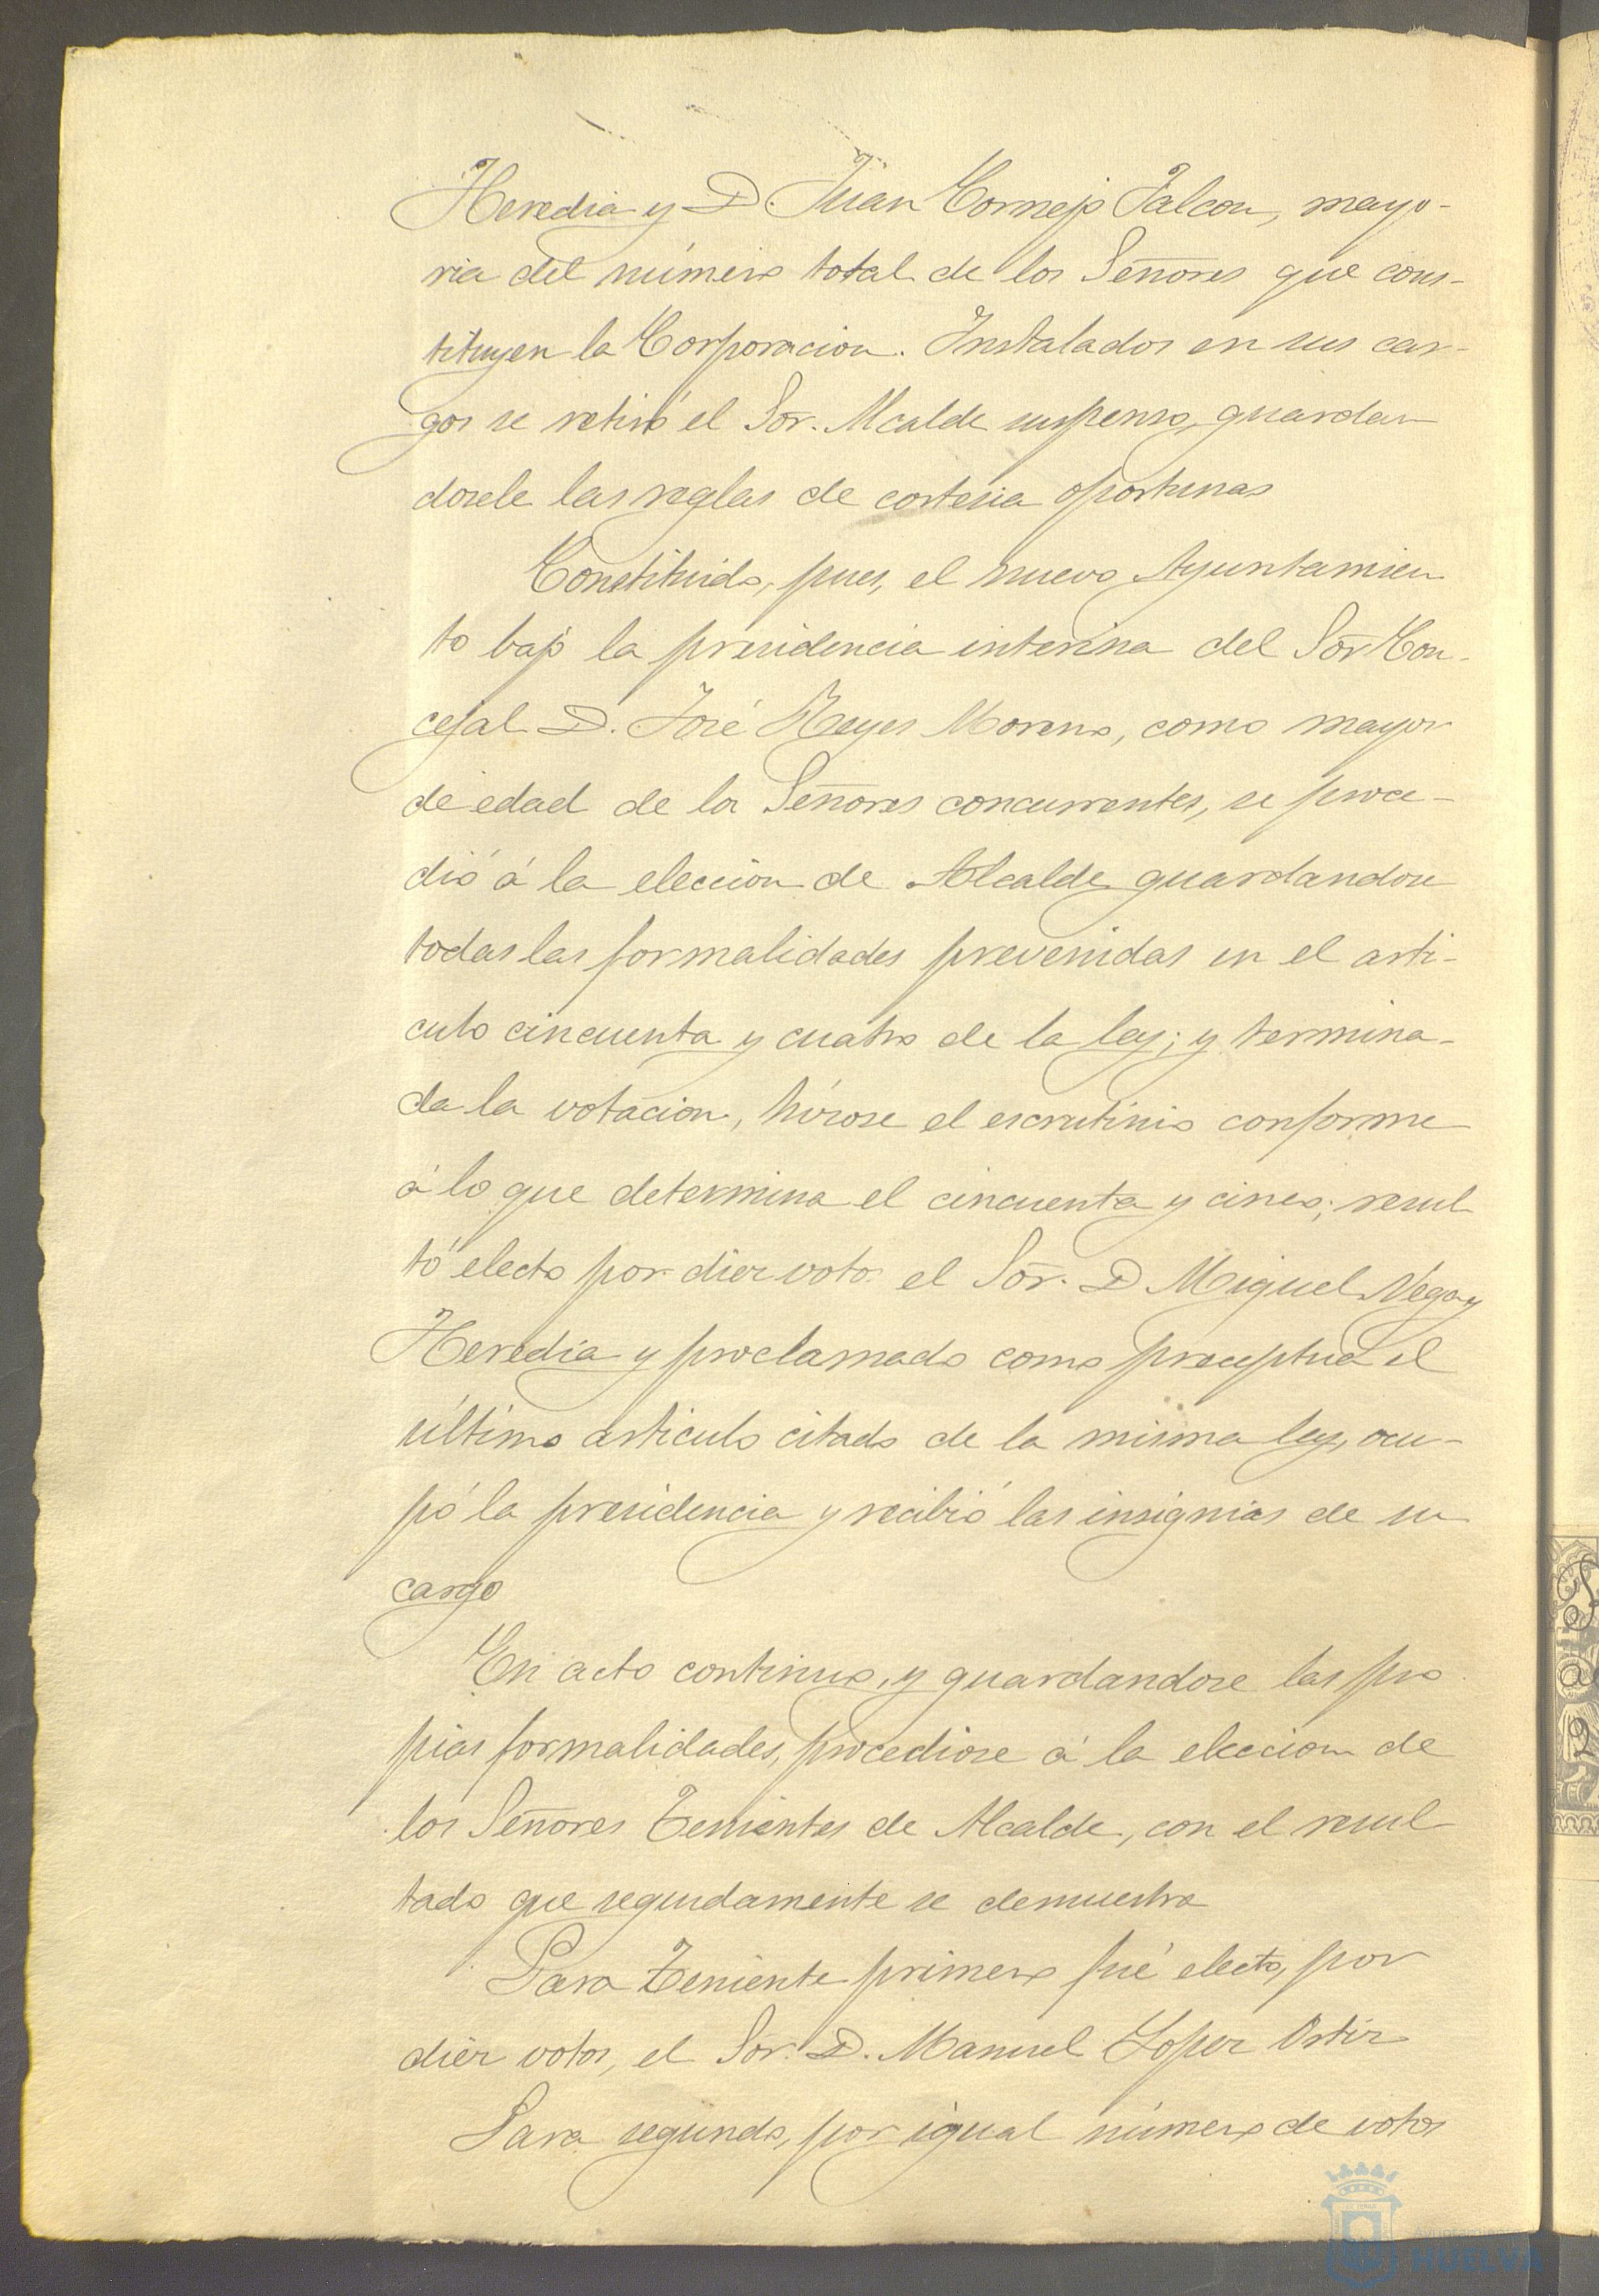 Heredia y D. Juan Cornejo Falcon, mayo-
ria del número total de los Señores que cons-
tituyen la Corporacion. Instalados en sus car-
gos se retiró el Sor. Alcalde suspenso, guardan
dosele las reglas de cortesia oportunas
Constituido, pues, el nuevo Ayuntamien
to bajo la presidencia interina del Sor Con-
cejal D. José Reyes Moreno, como mayor
de edad de los Señores concurrentes, se proce-
dió á la eleccion de Alcalde guardandose
todas las formalidades prevenidas en el arti-
culo cincuenta y cuatro de la ley; y termina-
da la votacion, hízose el escrutinio conforme
á lo que determina el cincuenta y cinco; resul
tó electo por diez votos el Sor. D Miguel Vega y
Heredia y proclamado como preceptua el
último articulo citado de la misma ley, ocu-
pó la presidencia y recibió las insignias de su
cargo
En acto continuo, y guardandose las pro
pias formalidades, procediose á la eleccion de
los Señores Tenientes de Alcalde, con el resul
tado que seguidamente se demuestra
Para Teniente primero fué electo, por
diez votos, el Sor. D. Manuel Lopez Ortiz
Para segundo, por igual número de votos
HUELVA